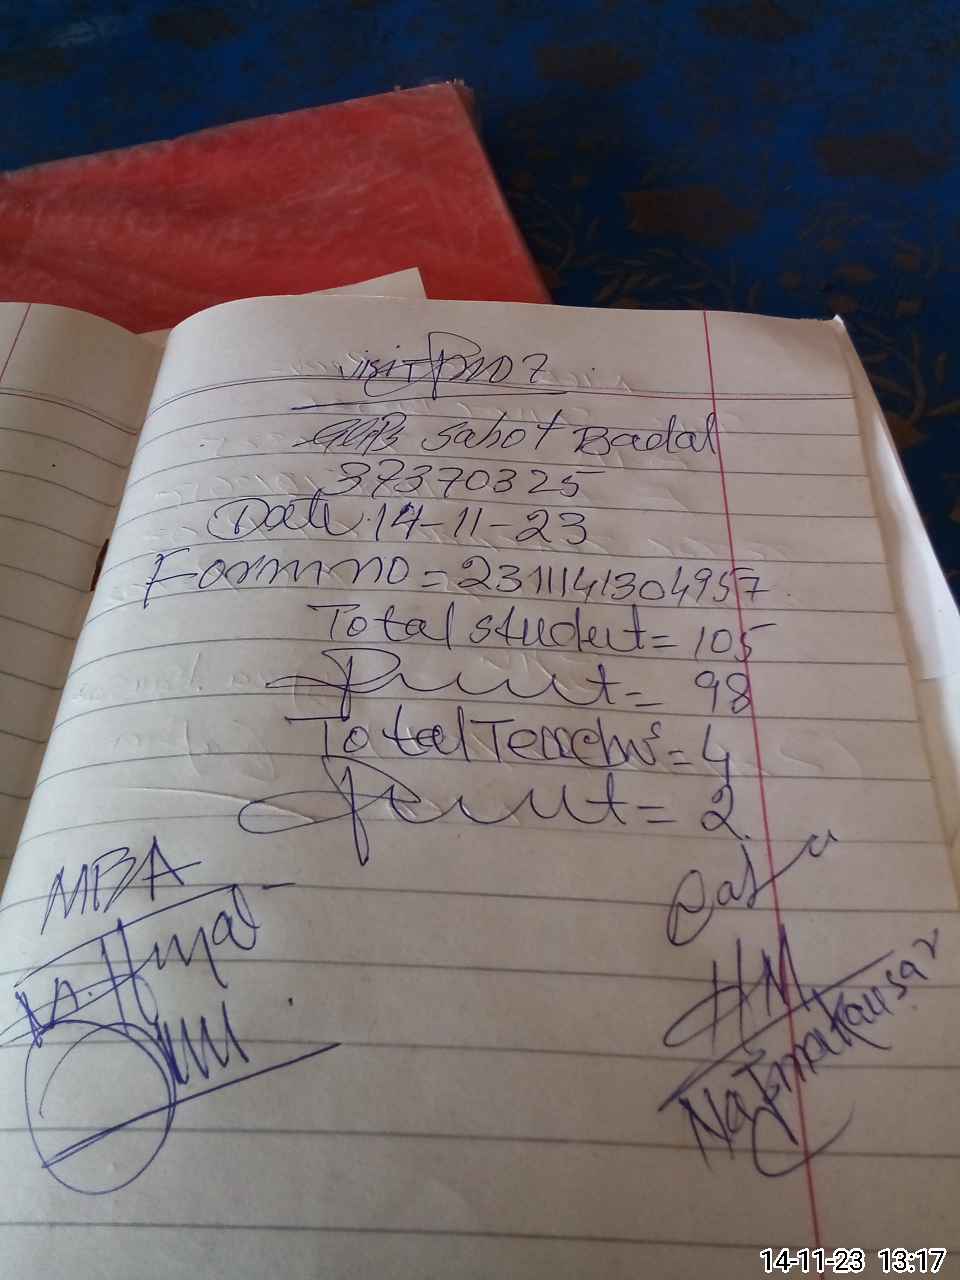 Visit Pro 7
Sabot Badal
37370325
Date 14-11-23
Form no = 2311141304957
Total student = 105
Present = 98
Total Teachers = 4
Present = 2
MBA
HM
Najma Kausar
14-11-23 13:17